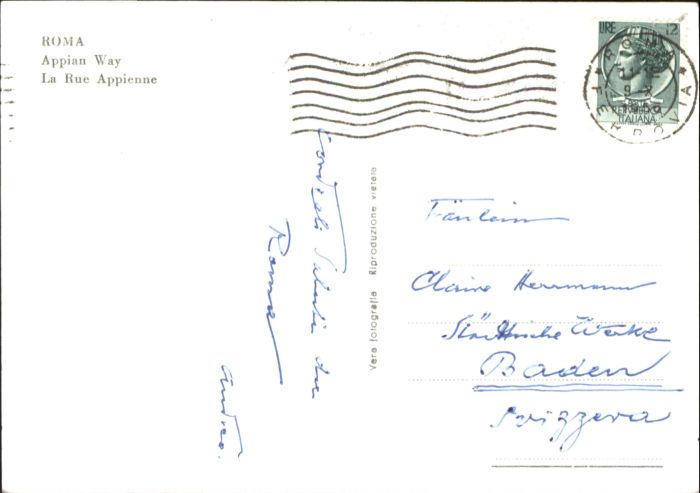 ROMA
Appian Way
La Rue Appienne
LIRE 12
ROMA
FERROVIA
REPUBBLICA
ITALIANA
Cordiali Saluti da
Roma
Vera fotografia Riproduzione vietata
Fräulein
Claire Herrmann
Städtische Werke
Baden
Svizzera